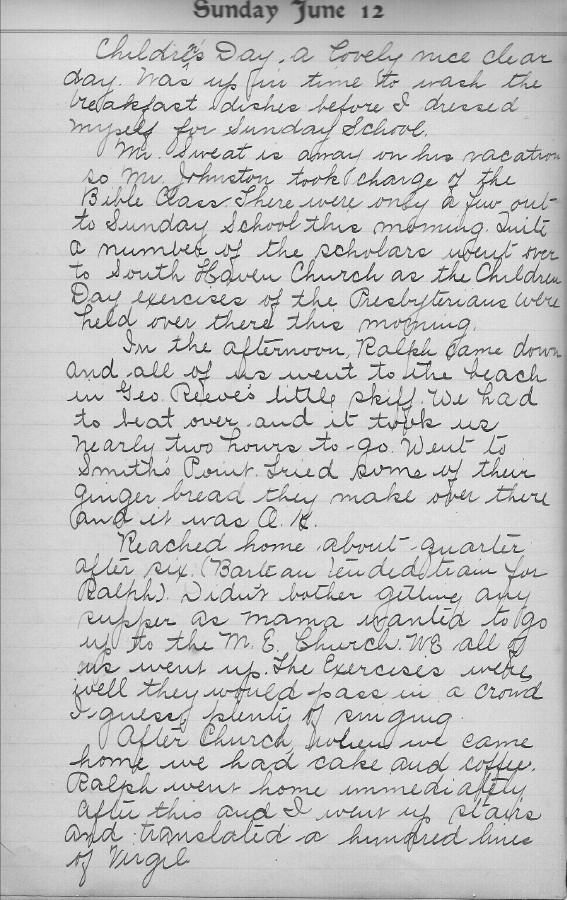 Sunday June 12
Children's Day, a lovely nice clear
day. Was up in time to wash the
breakfast dishes before I dressed
myself for Sunday School.
Mr. Sweat is away on his vacation
so Mr. Johnston took charge of the
Bible Class. There were only a few out
to Sunday School this morning. Quite
a number of the scholars went over
to South Haven Church as the Children
Day exercises of the Presbyterians were
held over there this morning.
In the afternoon, Ralph came down
and all of us went to the beach
in Geo. Reeve's little skiff. We had
to beat over and it took us
nearly two hours to go. Went to
Smith's Point. Tried some of their
ginger bread they make over there
and it was O.K.
Reached home about quarter
after six. (Barteau tended train for
Ralph). Didn't bother getting any
supper as mama wanted to go
up to the M.E. Church. WE all of
us went up. The Exercises were
well they would pass in a crowd
I guess, plenty of singing.
After Church, when we came
home we had cake and coffee.
Ralph went home immediately
after this and I went up stairs
and translated a hundred lines
of Virgil